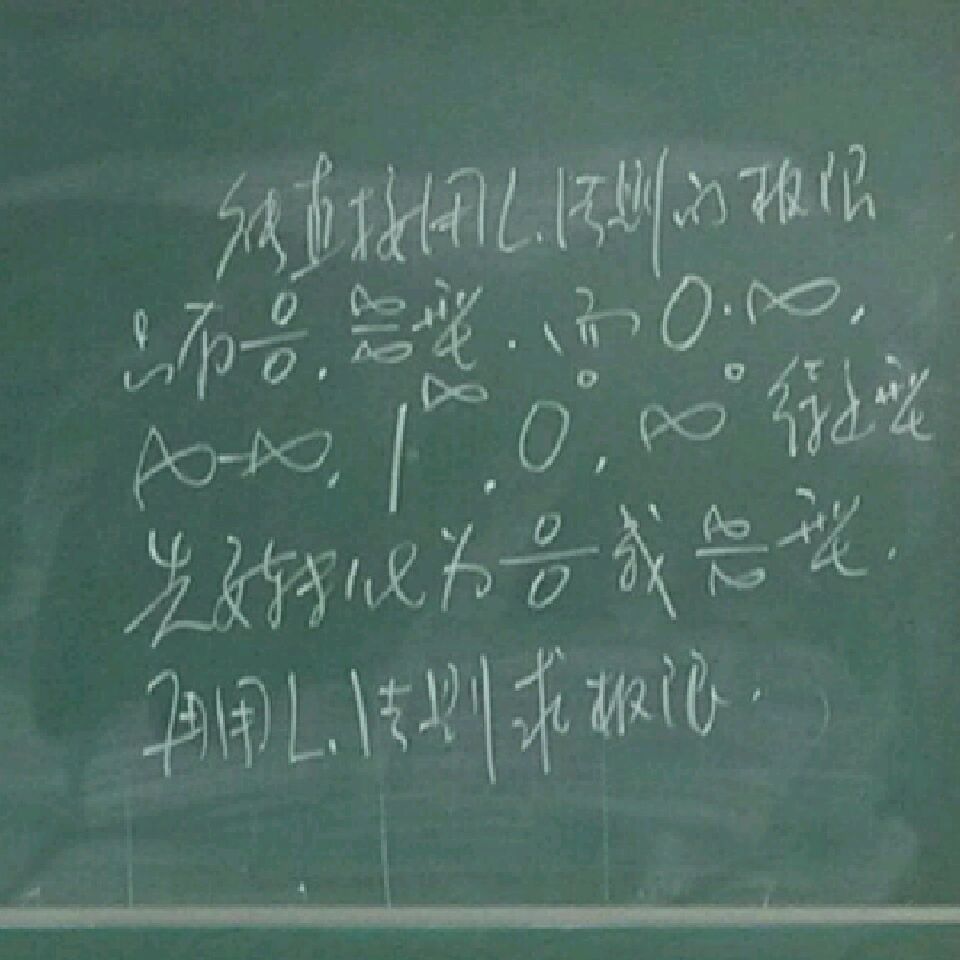 能直接用L.法则的极限
只有0/0,∞/∞型.而0·∞,
∞-∞,1^∞,0^0,∞^0 等类型
先要转化为0/0或∞/∞型.
再用L.法则求极限.